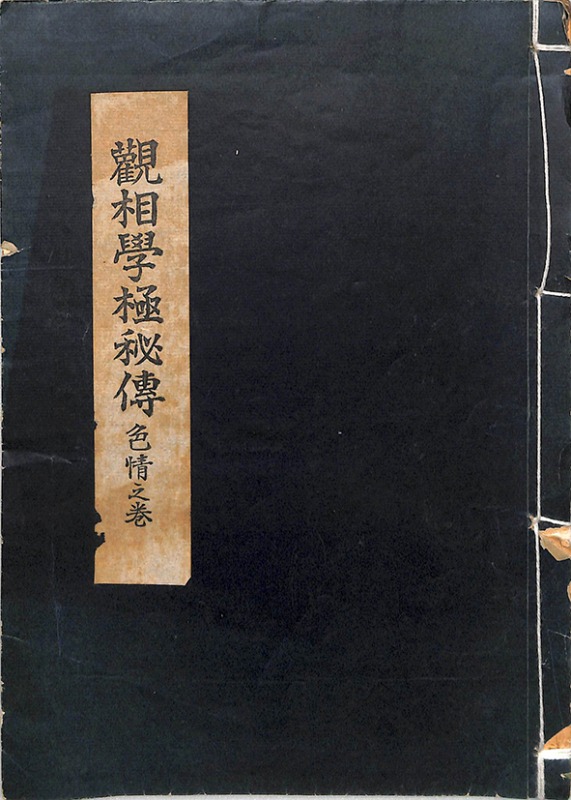 觀相學極秘傳色情之卷